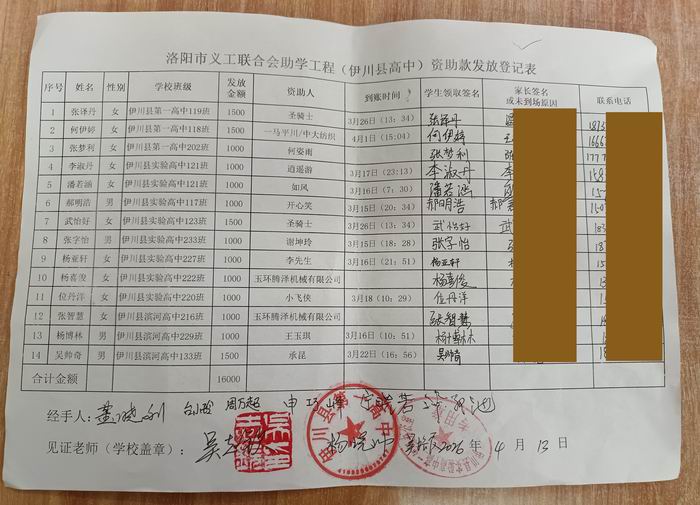 洛阳市义工联合会助学工程（伊川县高中）资助款发放登记表
序号 姓名 性别 学校班级 发放金额 资助人 到账时间 学生领取签名 家长签名或未到场原因 联系电话
1 张泽丹 女 伊川县第一高中119班 1500 圣骑士 3月26日(13:34) 张泽丹
2 何伊婷 女 伊川县第一高中118班 1500 一马平川/中大纺织 4月1日(15:04) 何伊婷
3 张梦利 女 伊川县第一高中202班 1000 何姿雨 张梦利
4 李淑丹 女 伊川县实验高中121班 1000 逍遥游 3月17日(23:13) 李淑丹
5 潘若涵 女 伊川县实验高中121班 1000 如风 3月16日(7:30) 潘若涵
6 郝明浩 男 伊川县实验高中117班 1000 开心笑 3月15日(20:34) 郝明浩
7 武怡好 女 伊川县实验高中123班 1500 圣骑士 3月26日(13:34) 武怡好
8 张字怡 男 伊川县实验高中233班 1000 谢坤玲 3月15日(18:28) 张字怡
9 杨亚轩 女 伊川县实验高中227班 1000 李先生 3月16日(21:51) 杨亚轩
10 杨喜浚 女 伊川县实验高中222班 1000 玉环腾泽机械有限公司
11 位丹洋 女 伊川县实验高中220班 1000 小飞侠 3月18(10:29) 位丹洋
12 张智慧 女 伊川县滨河高中216班 1000 玉环腾泽机械有限公司 张智慧
13 杨博林 男 伊川县滨河高中229班 1000 王玉琪 3月16日(10:51) 杨博林
14 吴帅奇 男 伊川县滨河高中133班 1500 承昆 3月22日(16:56) 吴帅奇
合计金额 16000
经手人：
见证老师（学校盖章）： 2026年4月13日